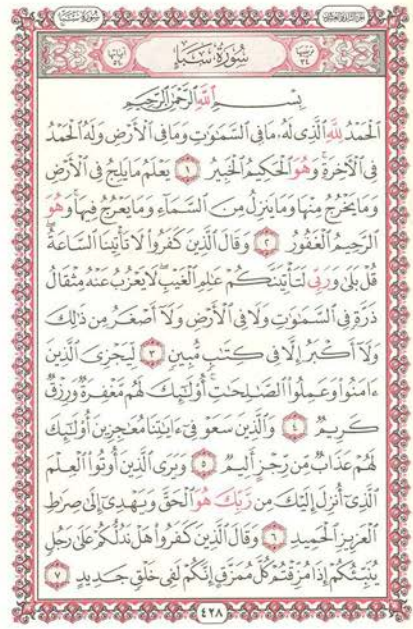 سُورَةُ سَبَإٍ
بِسْمِ ٱللَّهِ ٱلرَّحْمَٰنِ ٱلرَّحِيمِ
ٱلْحَمْدُ لِلَّهِ ٱلَّذِى لَهُۥ مَا فِى ٱلسَّمَٰوَٰتِ وَمَا فِى ٱلْأَرْضِ وَلَهُ ٱلْحَمْدُ
فِى ٱلْآخِرَةِ وَهُوَ ٱلْحَكِيمُ ٱلْخَبِيرُ ١ يَعْلَمُ مَا يَلِجُ فِى ٱلْأَرْضِ
وَمَا يَخْرُجُ مِنْهَا وَمَا يَنزِلُ مِنَ ٱلسَّمَآءِ وَمَا يَعْرُجُ فِيهَا وَهُوَ
ٱلرَّحِيمُ ٱلْغَفُورُ ٢ وَقَالَ ٱلَّذِينَ كَفَرُوا۟ لَا تَأْتِينَا ٱلسَّاعَةُ
قُلْ بَلَىٰ وَرَبِّى لَتَأْتِيَنَّكُمْ عَٰلِمِ ٱلْغَيْبِ لَا يَعْزُبُ عَنْهُ مِثْقَالُ
ذَرَّةٍ فِى ٱلسَّمَٰوَٰتِ وَلَا فِى ٱلْأَرْضِ وَلَآ أَصْغَرُ مِن ذَٰلِكَ
وَلَآ أَكْبَرُ إِلَّا فِى كِتَٰبٍ مُّبِينٍ ٣ لِّيَجْزِىَ ٱلَّذِينَ
ءَامَنُوا۟ وَعَمِلُوا۟ ٱلصَّٰلِحَٰتِ أُو۟لَٰٓئِكَ لَهُم مَّغْفِرَةٌ وَرِزْقٌ
كَرِيمٌ ٤ وَٱلَّذِينَ سَعَوْ فِىٓ ءَايَٰتِنَا مُعَٰجِزِينَ أُو۟لَٰٓئِكَ
لَهُمْ عَذَابٌ مِّن رِّجْزٍ أَلِيمٌ ٥ وَيَرَى ٱلَّذِينَ أُوتُوا۟ ٱلْعِلْمَ
ٱلَّذِىٓ أُنزِلَ إِلَيْكَ مِن رَّبِّكَ هُوَ ٱلْحَقَّ وَيَهْدِىٓ إِلَىٰ صِرَٰطِ
ٱلْعَزِيزِ ٱلْحَمِيدِ ٦ وَقَالَ ٱلَّذِينَ كَفَرُوا۟ هَلْ نَدُلُّكُمْ عَلَىٰ رَجُلٍ
يُنَبِّئُكُمْ إِذَا مُزِّقْتُمْ كُلَّ مُمَزَّقٍ إِنَّكُمْ لَفِى خَلْقٍ جَدِيدٍ ٧
٤٢٨